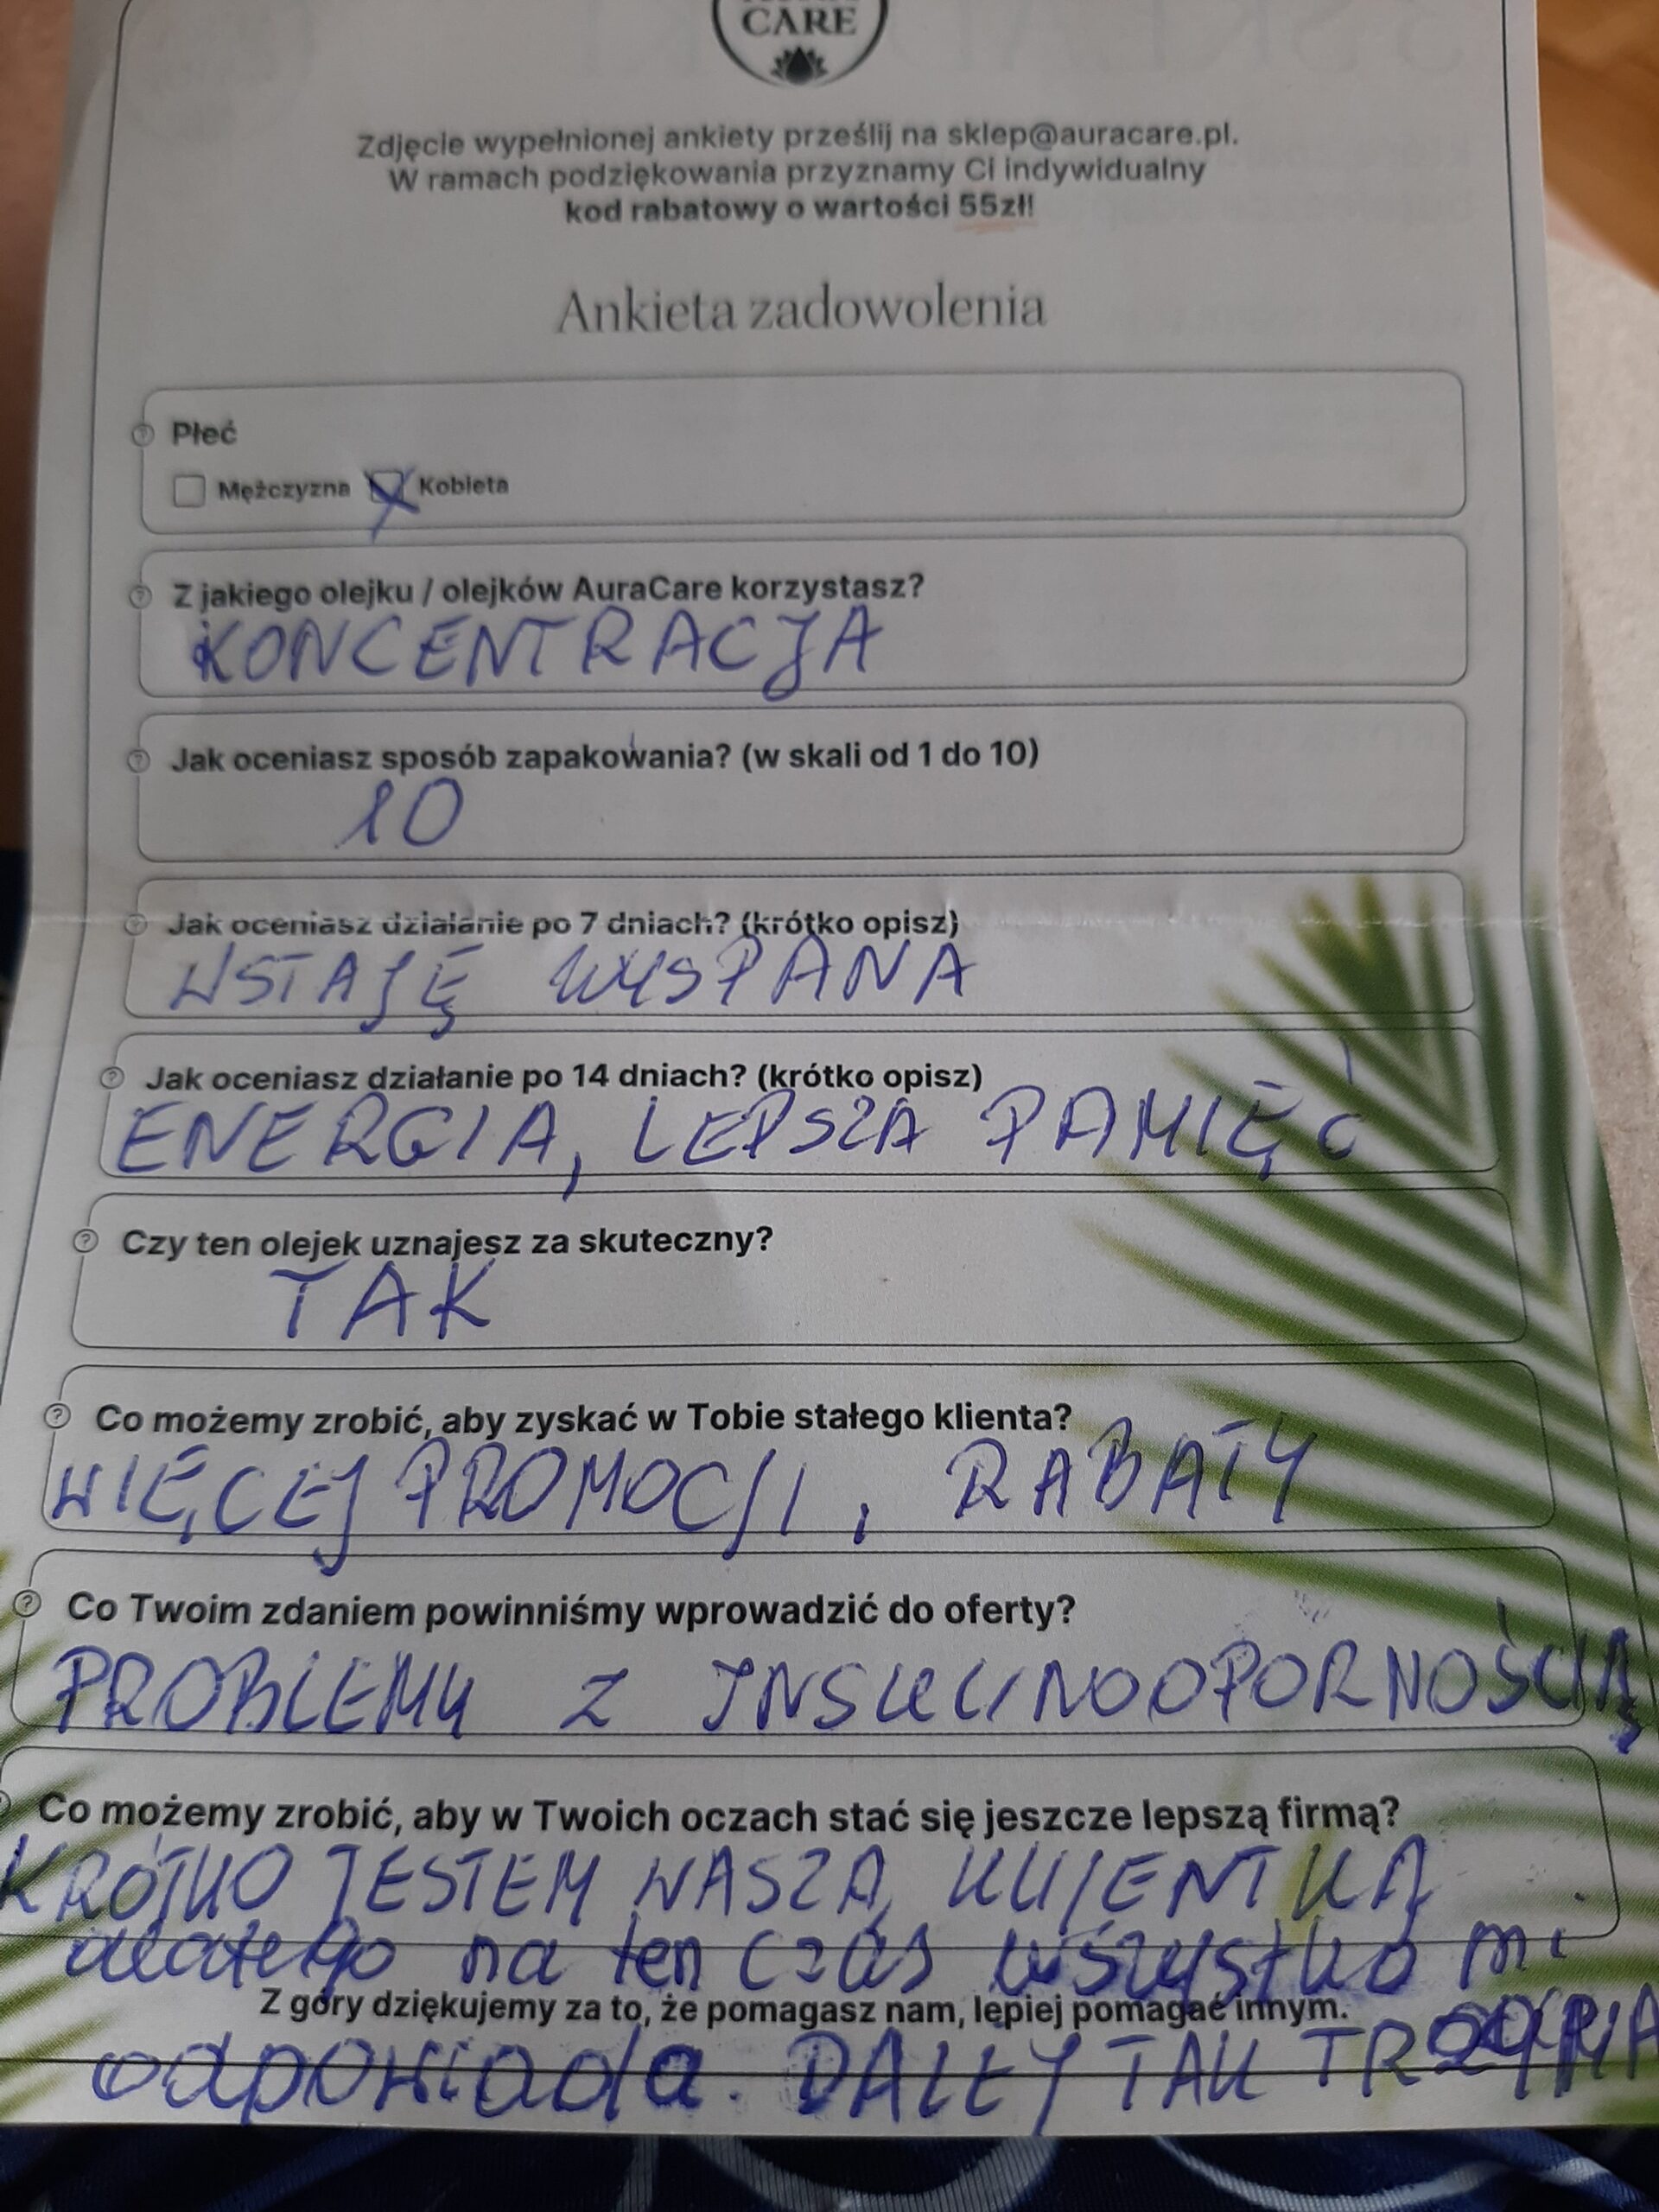 CARE
Zdjęcie wypełnionej ankiety prześlij na sklep@auracare.pl.
W ramach podziękowania przyznamy Ci indywidualny
kod rabatowy o wartości 55zł!
Ankieta zadowolenia
Płeć
Mężczyzna Kobieta
Z jakiego olejku / olejków AuraCare korzystasz?
KONCENTRACJA
Jak oceniasz sposób zapakowania? (w skali od 1 do 10)
10
Jak oceniasz działanie po 7 dniach? (krótko opisz)
WSTAJĘ WYSPANA
Jak oceniasz działanie po 14 dniach? (krótko opisz)
ENERGIA, LEPSZA PAMIĘĆ
Czy ten olejek uznajesz za skuteczny?
TAK
Co możemy zrobić, aby zyskać w Tobie stałego klienta?
WIĘCEJ PROMOCJI, RABATY
Co Twoim zdaniem powinniśmy wprowadzić do oferty?
PROBLEMY Z INSULINOOPORNOŚCIĄ
Co możemy zrobić, aby w Twoich oczach stać się jeszcze lepszą firmą?
KRÓTKO JESTEM WASZĄ KLIJENTKĄ
dlatego na ten czas wszystko mi
Z góry dziękujemy za to, że pomagasz nam, lepiej pomagać innym.
odpowiada. DALEJ TAK